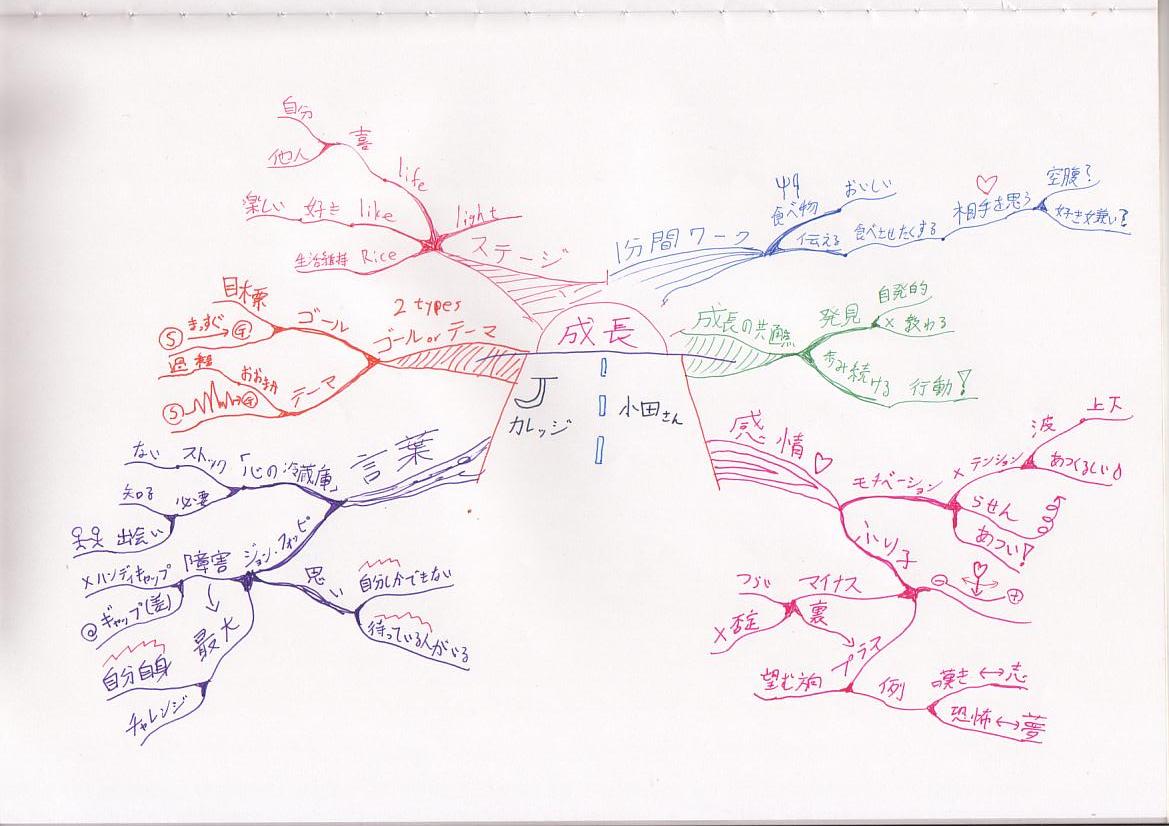 成長
Jカレッジ
小田さん
1分間ワーク
食べ物
おいしい
伝える
食べさせたくする
相手を思う
空腹?
好き嫌い?
成長の共通点
発見
自発的
× 教わる
歩み続ける
行動!
感情
モチベーション
× テンション
波
上下
あつくるしい
らせん
あつい!
ふり子
⊖
⊕
マイナス
つらい
×否定
裏
プラス
望む方向
例
嘆き ↔ 志
恐怖 ↔ 夢
言葉
「心の冷蔵庫」
ストック
ない
必要
知る
出会い
ジョン・フォッピ
「障害
×ハンディキャップ
◎ギャップ(差)
最大
自分自身
チャレンジ
思い
自分しかできない
待っている人がいる
2 types
ゴール or テーマ
ゴール
目標
Ⓢ まっすぐ → Ⓖ
テーマ
過程
おおまか
Ⓢ Ⓖ
ステージ
light
life
喜
自分
他人
like
好き
楽しい
Rice
生活維持